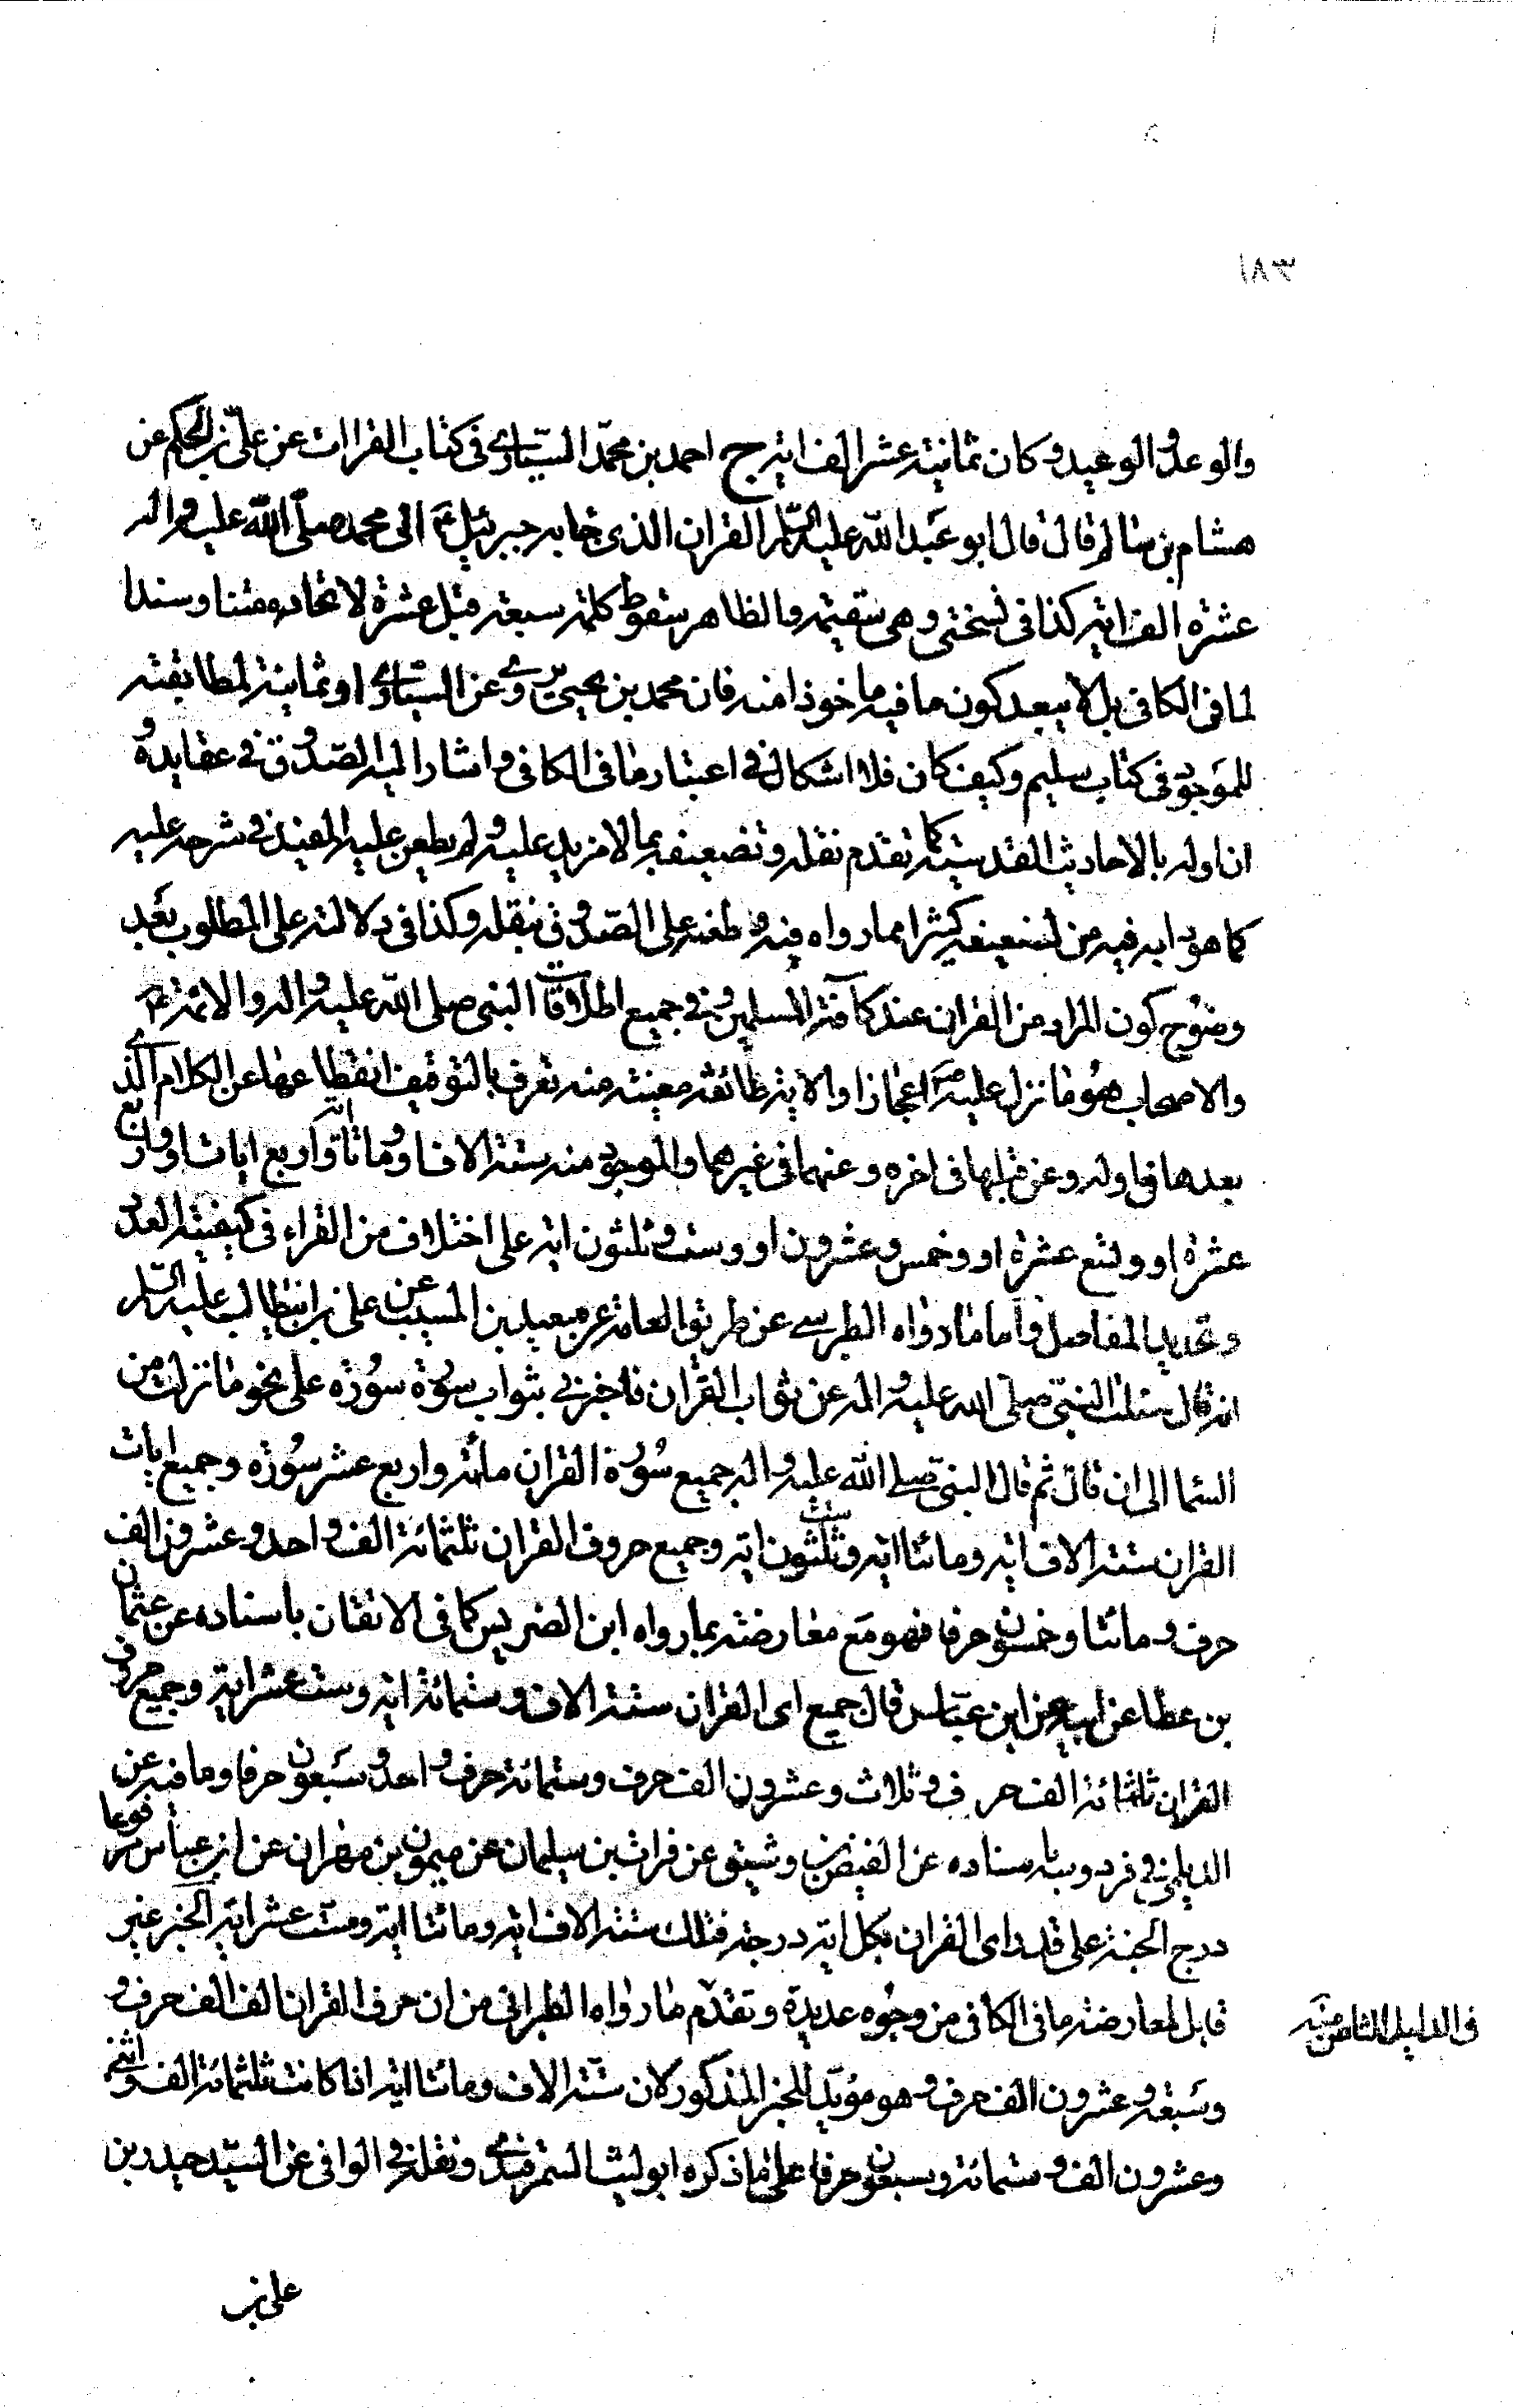 ١٨٣
والوعد والوعيد وكان ثمانية عشر الف اية ج احمد بن محمد السياري في كتاب القراات عن علي بن الحكم عن
هشام بن سالم قال قال ابو عبد الله عليه السلم القران الذي جا به جبرئيل ع الى محمد صلى الله عليه واله
عشرة الف اية كذا في نسختي وهي سقيمة والظاهر سقوط كلمة سبعة قبل عشرة لاتحاده متنا وسندا
لما في الكافي بل لا يبعد كون ما فيه ماخوذا منه فان محمد بن يحيى يروي عن السياري او ثمانية لمطابقته
للموجود في كتاب سليم وكيف كان فلا اشكال في اعتبار ما في الكافي واشار اليه الصدوق في عقايده و
ان اوله بالاحاديث القدسية كما تقدم نقله وتضعيفه بما لا مزيد عليه ولم يطعن عليه المفيد في شرحه عليه
كما هو دابه فيه من تضعيفه كثيرا مما رواه فيه وطعنه على الصدوق في نقله وكذا في دلالته على المطلوب بعد
وضوح كون المراد من القران عند كافة المسلمين وفي جميع اطلاقات النبي صلى الله عليه واله والائمة ع
والاصحاب هو ما نزل عليه ص اعجازا والاية طائفة معينة منه تعرف بالتوقيف انقطاعها عن الكلام الذي
بعدها في اوله وعن قبلها في اخره وعنهما في غيرهما والموجود منه ستة الاف وماتا اية واربع ايات او واربع
عشرة او وتسع عشرة او وخمس وعشرون او وست وثلثون اية على اختلاف من القراء في كيفية العد
وتحديد المفاصل واما ما رواه الطبرسي عن طريق العامة عن سعيد بن المسيب عن علي بن ابيطالب عليه السلم
انه قال سئلت النبي صلى الله عليه واله عن ثواب القران فاخبرني بثواب سورة سورة على نحو ما نزلت من
السما الى ان قال ثم قال النبي صلى الله عليه واله جميع سورة القران مائة واربع عشر سورة وجميع ايات
القران ستة الاف اية ومائتا اية وست وثلثون اية وجميع حروف القران ثلثمائة الف واحد وعشرون الف
حرف ومائتا وخمسون حرفا فهو مع معارضته بما رواه ابن الضريس كما في الاتقان باسناده عن عثمان
بن عطا عن ابيه عن ابن عباس قال جميع اى القران ستة الاف وستمائة اية وست عشر اية وجميع حروف
القران ثلثمائة الف حرف وثلاث وعشرون الف حرف وستمائة حرف واحد وسبعون حرفا وما فيه عن
الديلمي في فردوسه باسناده عن الفيض بن وثيق عن فرات بن سليمان عن ميمون بن مهران عن ابن عباس مرفوعا
درج الجنة على قدر اى القران بكل اية درجة فتلك ستة الاف اية ومائتا اية وست عشر اية الخبر غير
قابل لمعارضة ما في الكافي من وجوه عديدة وتقدم ما رواه الطبراني من ان حرف القران الف الف حرف و
في الدليل الثامن منه
وسبعة وعشرون الف حرف وهو مؤيد للخبر المذكور لان ستة الاف ومائتا اية اذا كانت ثلثمائة الف واثني
وعشرون الف وستمائة وسبعون حرفا على ما ذكره ابو ليث السمرقندي ونقله في الوافي عن السيد حيدر بن
علي بن